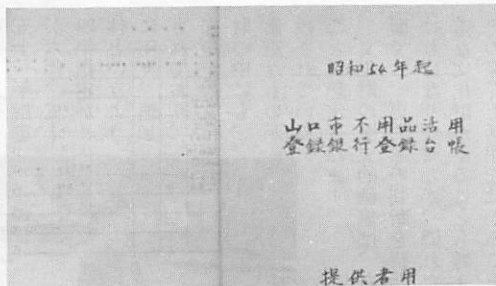 昭和54年起
山口市不用品活用
登録銀行登録台帳
提供者用